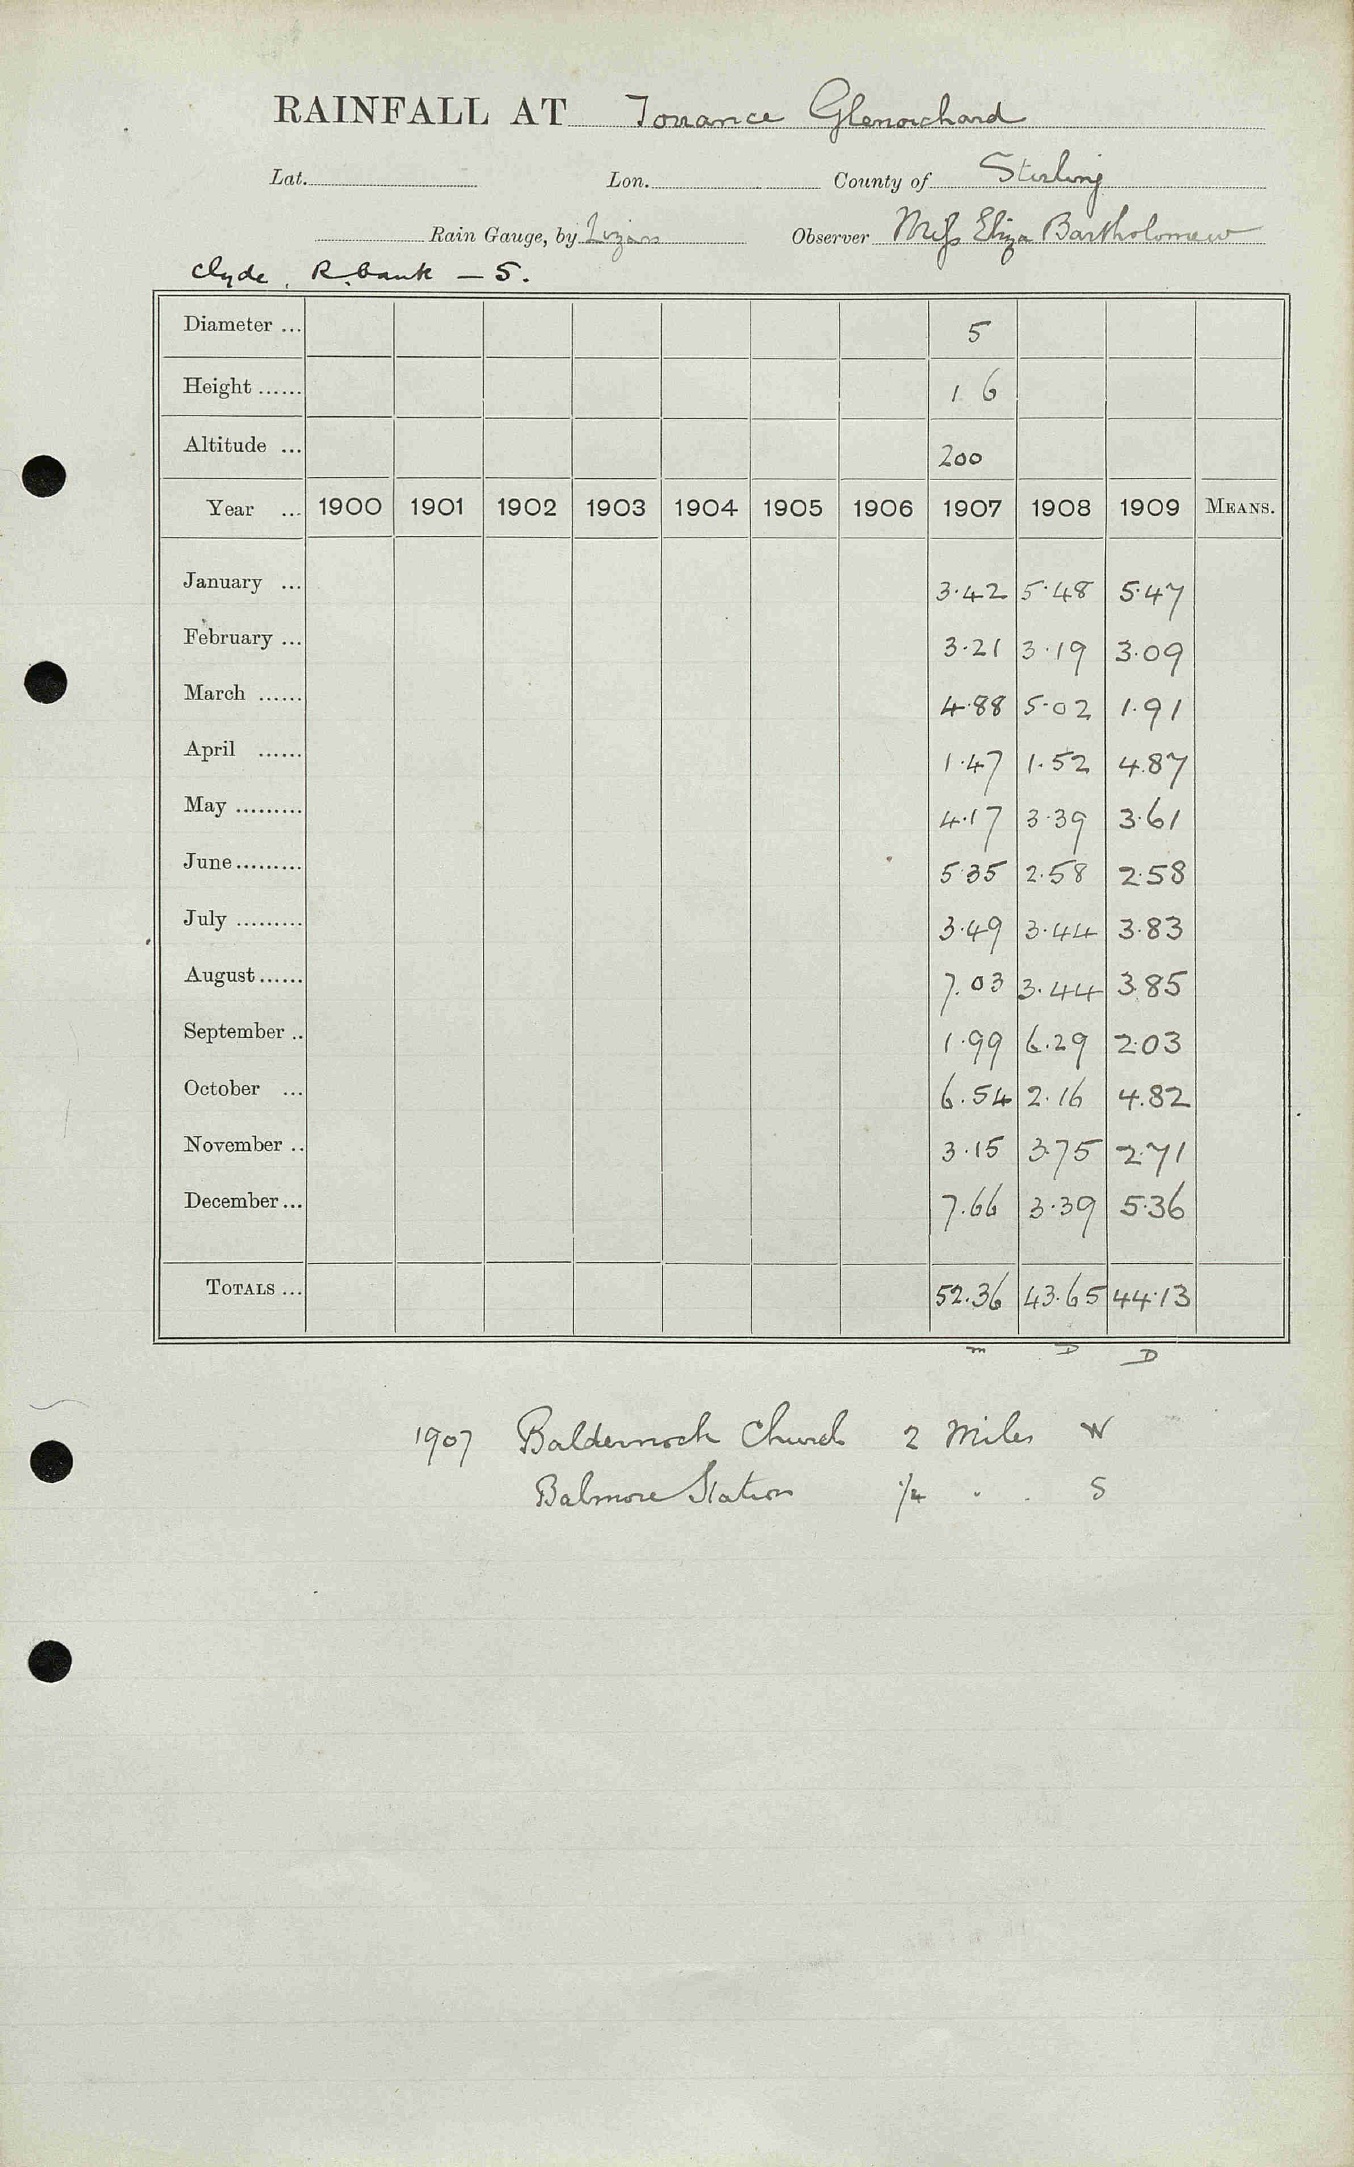 RAINFALL AT Torrance Glenorchard
Lat. Lon. County of Stirling
Rain Gauge, by Lizars Observer Miss Eliza Bartholomew
Clyde, R. bank — 5.
Diameter ... 5
Height ...... 1 6
Altitude ... 200
Year ... 1900 1901 1902 1903 1904 1905 1906 1907 1908 1909 MEANS.
January ... 3.42 5.48 5.47
February ... 3.21 3.19 3.09
March ...... 4.88 5.02 1.91
April ...... 1.47 1.52 4.87
May ......... 4.17 3.39 3.61
June ......... 5.35 2.58 2.58
July ......... 3.49 3.44 3.83
August ...... 7.03 3.44 3.85
September .. 1.99 6.29 2.03
October ... 6.54 2.16 4.82
November .. 3.15 3.75 2.71
December ... 7.66 3.39 5.36
TOTALS ... 52.36 43.65 44.13
m D D
1907 Baldernock Church 2 Miles W
Balmore Station 1/4 " . S